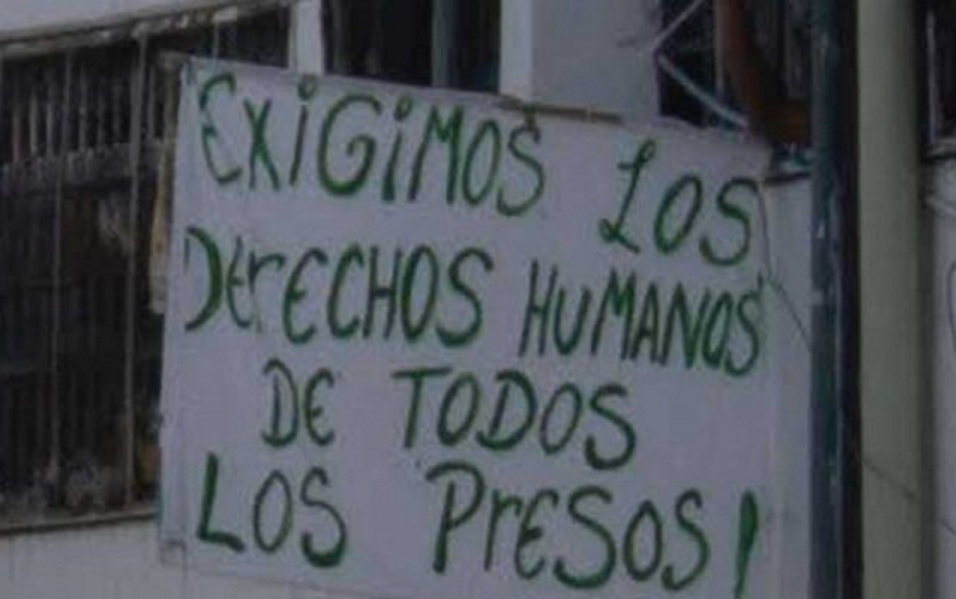 EXiGiMOS LOS
DErECHOS HUMANOS
DE TODOS
LOS PrESOS!